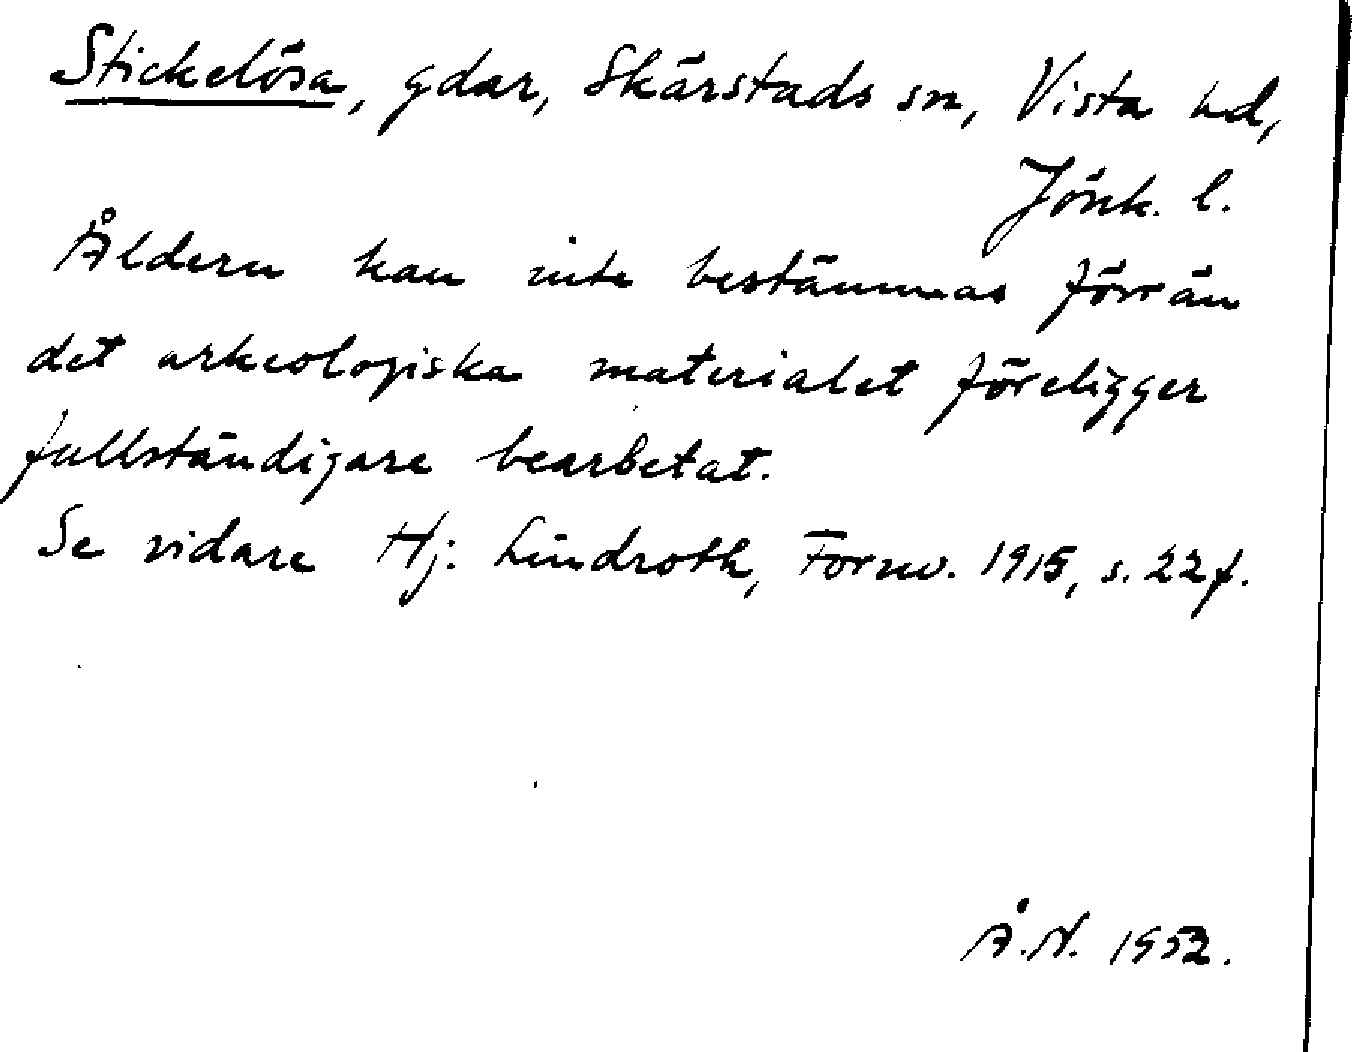 Stickelösa, gdar, Skärstads sn, Vista hd,
Jönk. l.
Åldern kan inte bestämmas förrän
det arkeologiska materialet föreligger
fullständigare bearbetat.
Se vidare Hj. Lindroth, Fornv. 1915, s. 22 f.
Å.N. 1952.